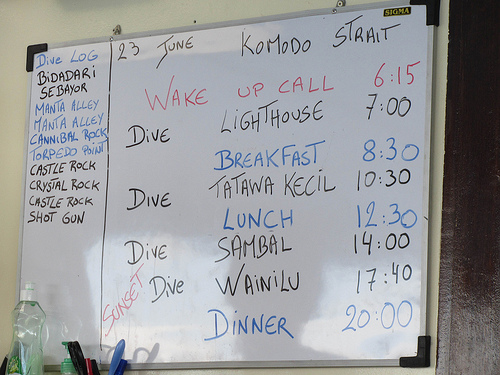 SIGMA
Dive LOG
BiDADARi
SEBAYOR
MANTA ALLEY
MANTA ALLEY
CANNiBAL ROCK
TORPEDO POiNT
CASTLE ROCK
CRYSTAL ROCK
CASTLE ROCK
SHOT GUN
23 JUNE KOMODO STRAIT
WAKE UP CALL 6:15
DivE LIGHTHOUSE 7:00
BREAKFAST 8:30
DivE TATAWA KECIL 10:30
LUNCH 12:30
DivE SAMBAL 14:00
SUNSET DivE WAINILU 17:40
DINNER 20:00